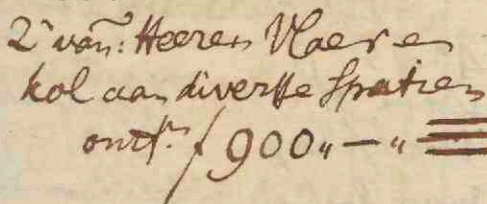 2e van: Heeren Vloer en
kol aan diversse Spetien
ontf: f 900 „ — „